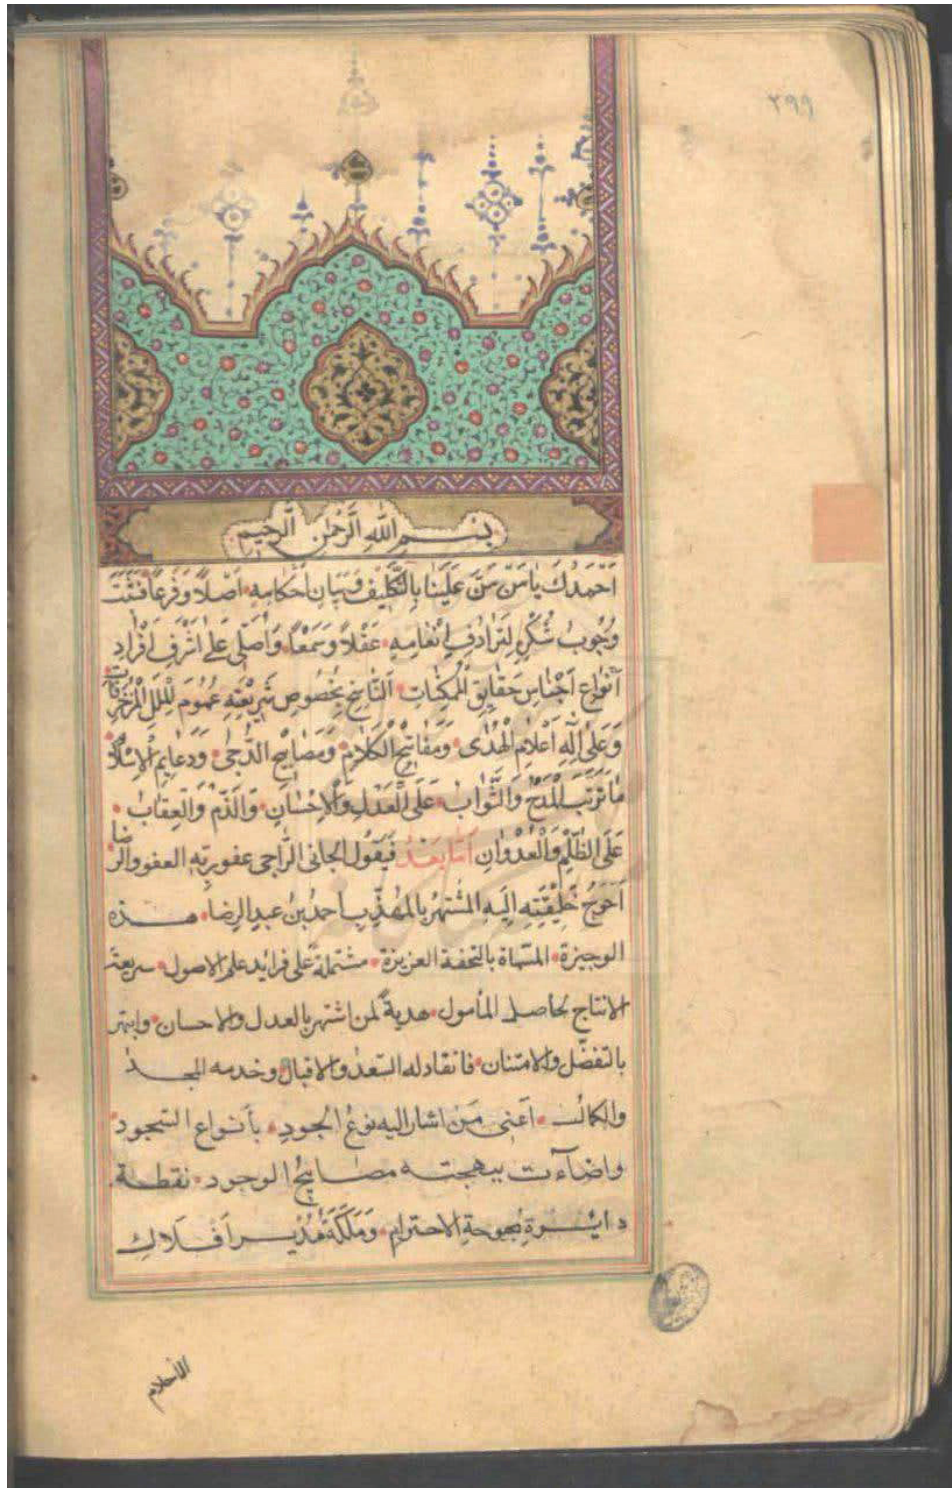 ٢٩٩
بسم الله الرحمن الرحيم
اَحْمَدُكَ يٰا مَنْ مَنَّ عَلَيْنٰا بِالتَّكٰلِيْفِ وَبَيَانِ اَحْكٰامِهِ اَصْلاً وَفَرْعاً فَثَبَتَ
وُجُوبُ شُكْرِهِ لِتَرٰادُفِ اِنْعٰامِهِ عَقْلاً وَسَمْعًا وَاُصَلّى عَلىٰ اَشْرَفِ اَفْرٰادِ
اَنْوٰاعِ اَجْنٰاسِ حَقٰايِقِ الْمُمْكِنٰاتِ النّٰاسِخِ بِخُصُوصِ شَرِيْعَتِهِ عُمُومَ الْمِلَلِ الْمُزَخْرَفٰاتِ
وَعَلىٰ اٰلِهِ اَعْلٰامِ الْهُدٰى وَمَفٰاتِيْحِ الْكَلٰامِ وَمَصٰابِيْحِ الدُّجىٰ وَدَعٰايِمِ الْاِسْلٰامِ
مٰا تَرَتَّبَ الْمَدْحُ وَالثَّوٰابُ عَلَى الْعَدْلِ وَالْاِحْسٰانِ وَالذَّمُّ وَالْعِقٰابُ
عَلَى الظُّلْمِ وَالْعُدْوٰانِ اَمّٰا بَعْدُ فَيَقُولُ الجانى الرّاجى عفو ربّه العفو والرضا
اَحْوَجُ خَلِيْقَتِهِ اِلَيْهِ المُشْتَهِرُ بالمهذّب احمدُ بنُ عبدِ الرِضا هـذه
الوجيزة المسمّاة بالتحفة العزيزة مشتملةً على فرايد علم الاصول سريعة
الانتاج لحاصل المأمول هديةً لمن اشتهر بالعدل والاحسان وابتهر
بالتفضّل والامتنان فانقاد له السّعد والاقبال وخدمه المجـد
والكمال اَعنى مَن اشار اليه نوعُ الجودِ بأنواع السّجود
واضآءت ببهجتـه مصابيحُ الوجود نقطـة
دايـرةِ بحبوحةِ الاحترامِ وَمَلَكَةُ مُدْيـرِ اَفْـلاكِ
الأحلام